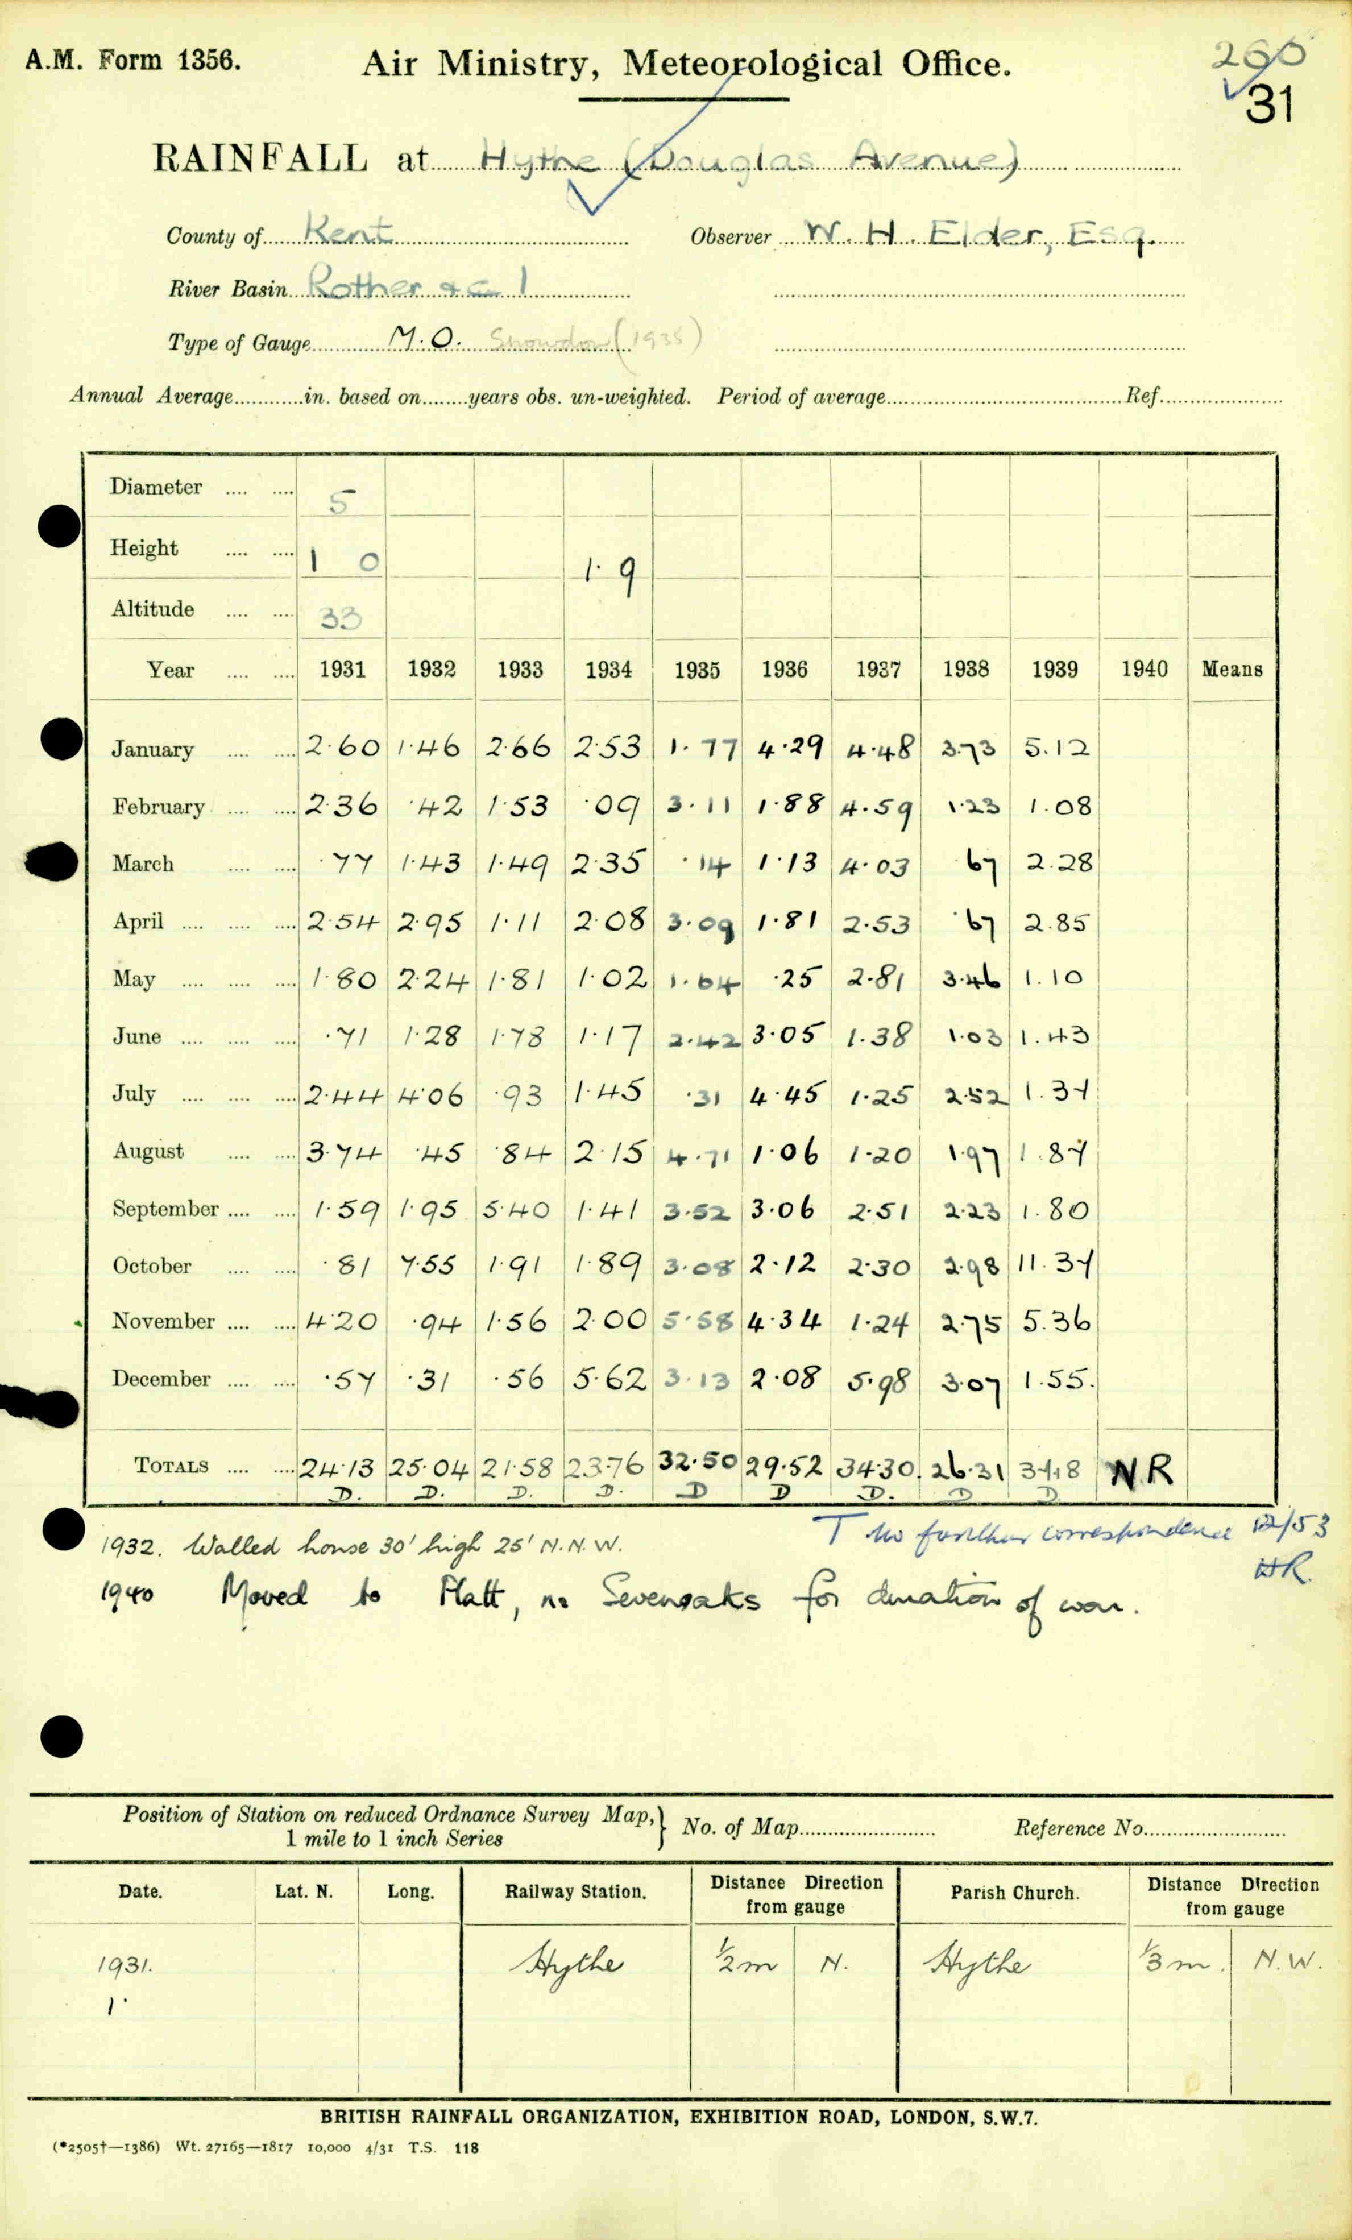 A.M. Form 1356. Air Ministry, Meteorological Office. 260
31
RAINFALL at Hythe (Douglas Avenue)
County of Kent Observer W. H. Elder, Esq.
River Basin Rother &c 1
Type of Gauge M.O. Snowdon (1935)
Annual Average in. based on years obs. un-weighted. Period of average Ref.
Diameter 5
Height 1 0 1.9
Altitude 33
Year 1931 1932 1933 1934 1935 1936 1937 1938 1939 1940 Means
January 2.60 1.46 2.66 2.53 1.77 4.29 4.48 3.73 5.12
February 2.36 .42 1.53 .09 3.11 1.88 4.59 1.23 1.08
March .77 1.43 1.49 2.35 .14 1.13 4.03 67 2.28
April 2.54 2.95 1.11 2.08 3.09 1.81 2.53 .67 2.85
May 1.80 2.24 1.81 1.02 1.64 .25 2.81 3.46 1.10
June .71 1.28 1.78 1.17 2.42 3.05 1.38 1.03 1.43
July 2.44 4.06 .93 1.45 .31 4.45 1.25 2.52 1.37
August 3.74 .45 .84 2.15 4.71 1.06 1.20 1.97 1.87
September 1.59 1.95 5.40 1.41 3.52 3.06 2.51 2.23 1.80
October .81 7.55 1.91 1.89 3.08 2.12 2.30 2.98 11.37
November 4.20 .94 1.56 2.00 5.58 4.34 1.24 2.75 5.36
December .57 .31 .56 5.62 3.13 2.08 5.98 3.07 1.55.
TOTALS 24.13 25.04 21.58 23.76 32.50 29.52 34.30. 26.31 37.18 NR
D. D. D. D. D D D. D D
T No further correspondence 12/53
HR.
1932. Walled house 30' high 25' N.N.W.
1940 Moved to Platt, nr Sevenoaks for duration of war.
Position of Station on reduced Ordnance Survey Map,} No. of Map Reference No.
1 mile to 1 inch Series
Date. Lat. N. Long. Railway Station. Distance Direction from gauge Parish Church. Distance Direction from gauge
1931. Hythe ½ m N. Hythe ⅓ m. N.W.
1.
BRITISH RAINFALL ORGANIZATION, EXHIBITION ROAD, LONDON, S.W.7.
(*2505†—1386) Wt. 27165—1817 10,000 4/31 T.S. 118